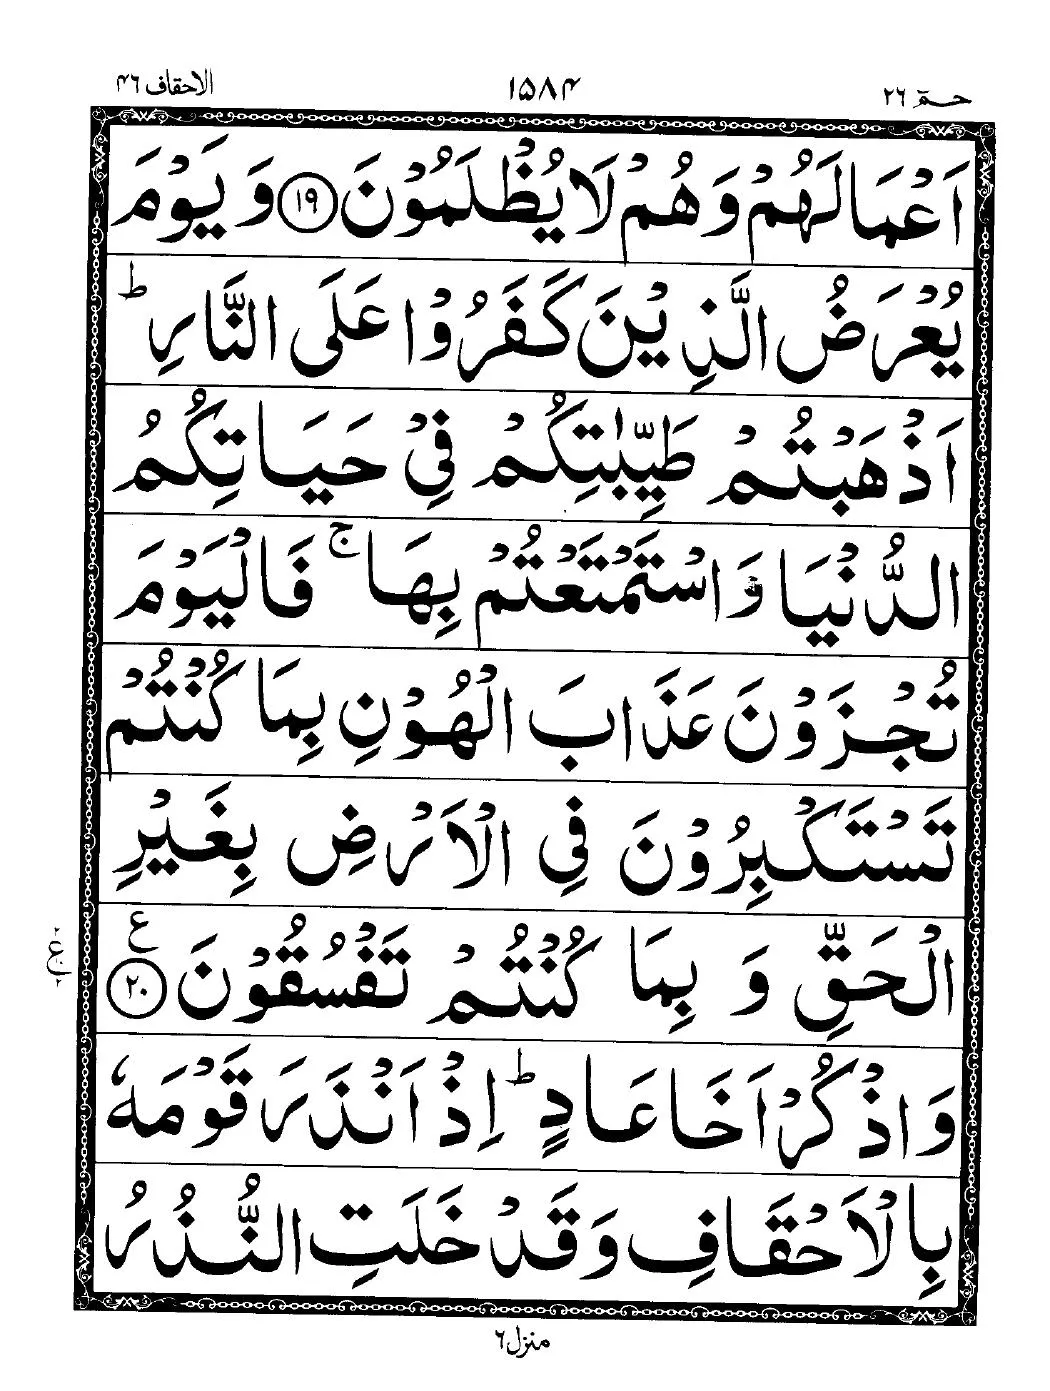 حٰمٓ ٢٦ ١٥٨۴ الاحقاف ۴٦
اَعْمَالَهُمْ وَهُمْ لَا يُظْلَمُوْنَ ۝١٩ وَ يَوْمَ
يُعْرَضُ الَّذِيْنَ كَفَرُوْا عَلَى النَّارِ ؕ
اَذْهَبْتُمْ طَيِّبٰتِكُمْ فِيْ حَيَاتِكُمُ
الدُّنْيَا وَاسْتَمْتَعْتُمْ بِهَا ۚ فَالْيَوْمَ
تُجْزَوْنَ عَذَابَ الْهُوْنِ بِمَا كُنْتُمْ
تَسْتَكْبِرُوْنَ فِي الْاَرْضِ بِغَيْرِ
الْحَقِّ وَ بِمَا كُنْتُمْ تَفْسُقُوْنَ ۝٢٠ ع
وَاذْكُرْ اَخَا عَادٍ ؕ اِذْ اَنْذَرَ قَوْمَهٗ
بِالْاَحْقَافِ وَقَدْ خَلَتِ النُّذُرُ
منزل ٦